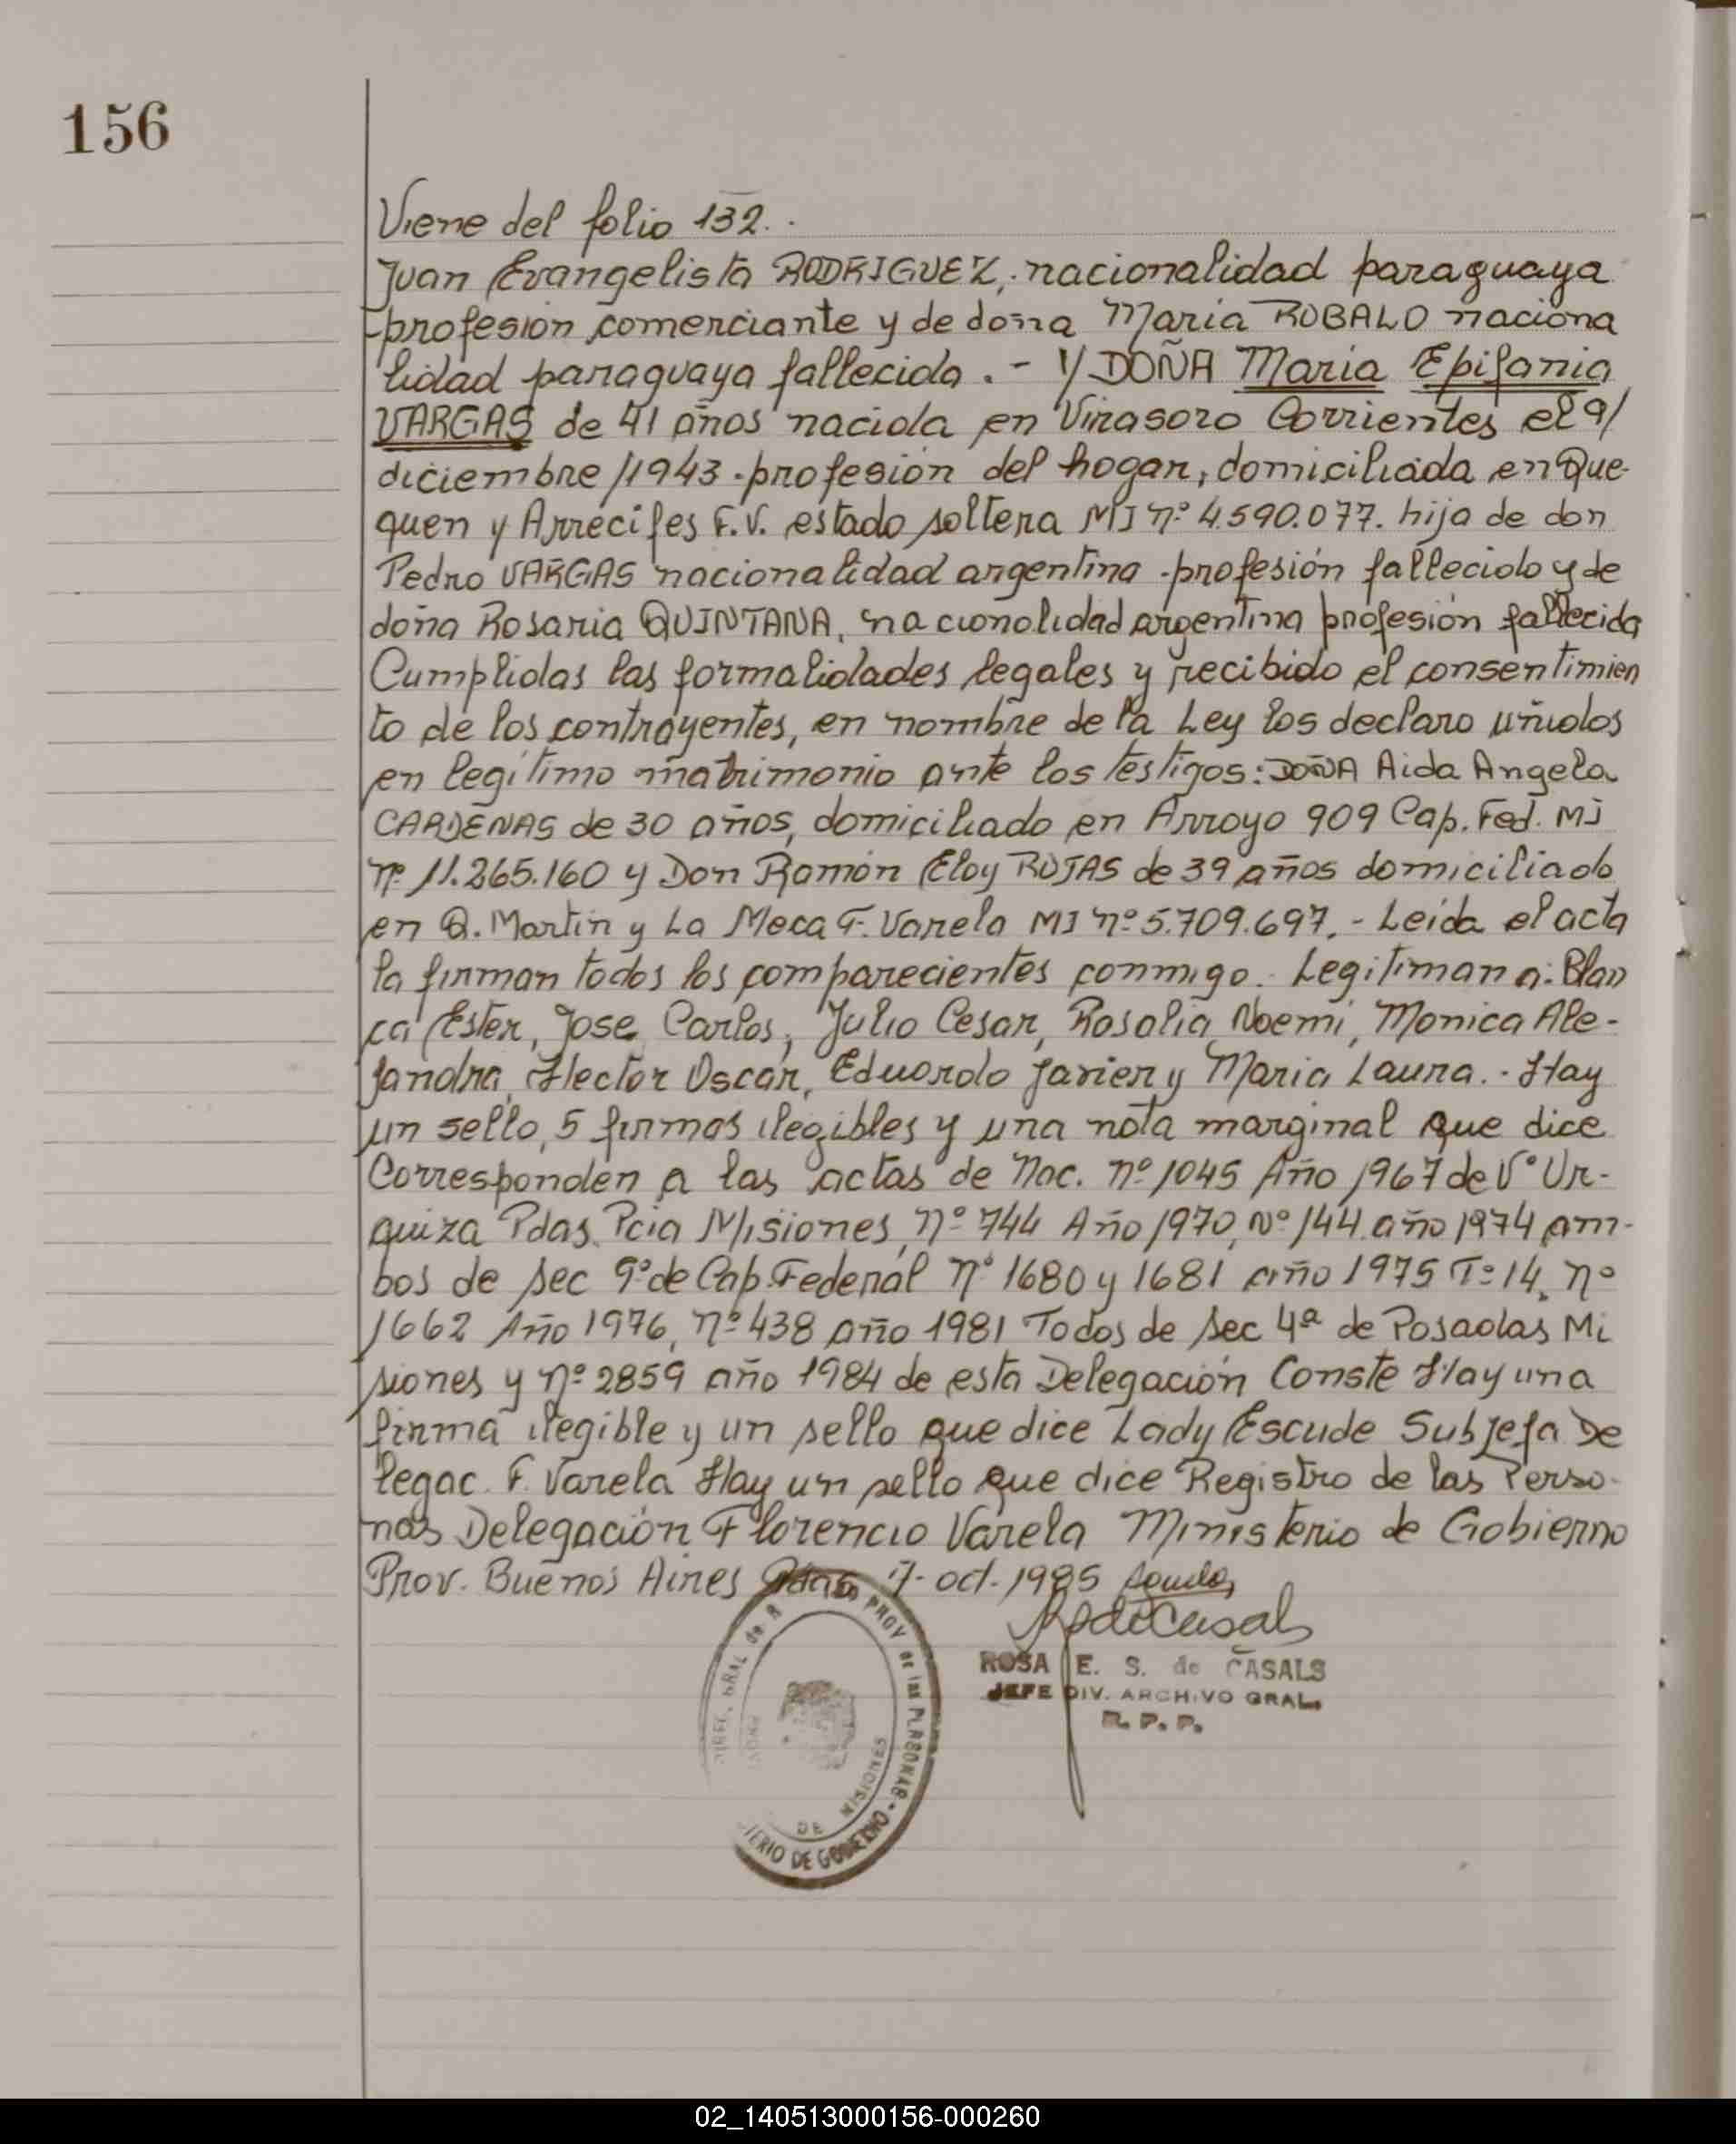 156
Viene del folio 132.
Juan Evangelista RODRIGUEZ, nacionalidad paraguaya
profesion comerciante y de doña Maria ROBALO naciona
lidad paraguaya fallecida. - Y DOÑA Maria Epifania
VARGAS de 41 años nacida en Virasoro Corrientes el 9/
diciembre/1943 profesión del hogar, domiciliada en Que-
quen y Arrecifes F.V. estado soltera MI nº 4.590.077. hija de don
Pedro VARGAS nacionalidad argentina profesión fallecido y de
doña Rosaria QUINTANA, nacionalidad argentina profesión fallecida
Cumplidas las formalidades legales y recibido el consentimien
to de los contrayentes, en nombre de la Ley los declaro unidos
en legítimo matrimonio ante los testigos: DOÑA Aida Angela
CARDENAS de 30 años, domiciliado en Arroyo 909 Cap. Fed. MI
nº 11.265.160 y Don Ramón Eloy ROJAS de 39 años domiciliado
en Q. Martin y La Meca F. Varela MI nº 5.709.697. - Leída el acta
la firman todos los comparecientes conmigo. Legitiman a: Blan
ca Ester, Jose Carlos, Julio Cesar, Rosalia Noemi, Monica Ale-
jandra, Hector Oscar, Eduardo Javier y Maria Laura. - Hay
un sello, 5 firmas ilegibles y una nota marginal que dice
Corresponden a las actas de Nac. nº 1045 Año 1967 de Vº Ur-
quiza Pdas. Pcia Misiones, nº 744 Año 1970, Nº 144 año 1974 am-
bos de sec 9º de Cap. Federal nº 1680 y 1681 año 1975 Tº 14, nº
1662 Año 1976, nº 438 año 1981 Todos de sec 4ª de Posadas Mi
siones y nº 2859 año 1984 de esta Delegación Conste Hay una
firma ilegible y un sello que dice Lady Escude Subjefa De
legac. F. Varela Hay un sello que dice Registro de las Perso-
nas Delegación Florencio Varela Ministerio de Gobierno
Prov. Buenos Aires Pdas 7-oct-1985
ROSA E. S. de CASALS
JEFE DIV. ARCHIVO GRAL.
R. P. P.
GRAL de PROV de las PERSONAS
DE MISIONES
DE GOBIERNO
02_140513000156-000260